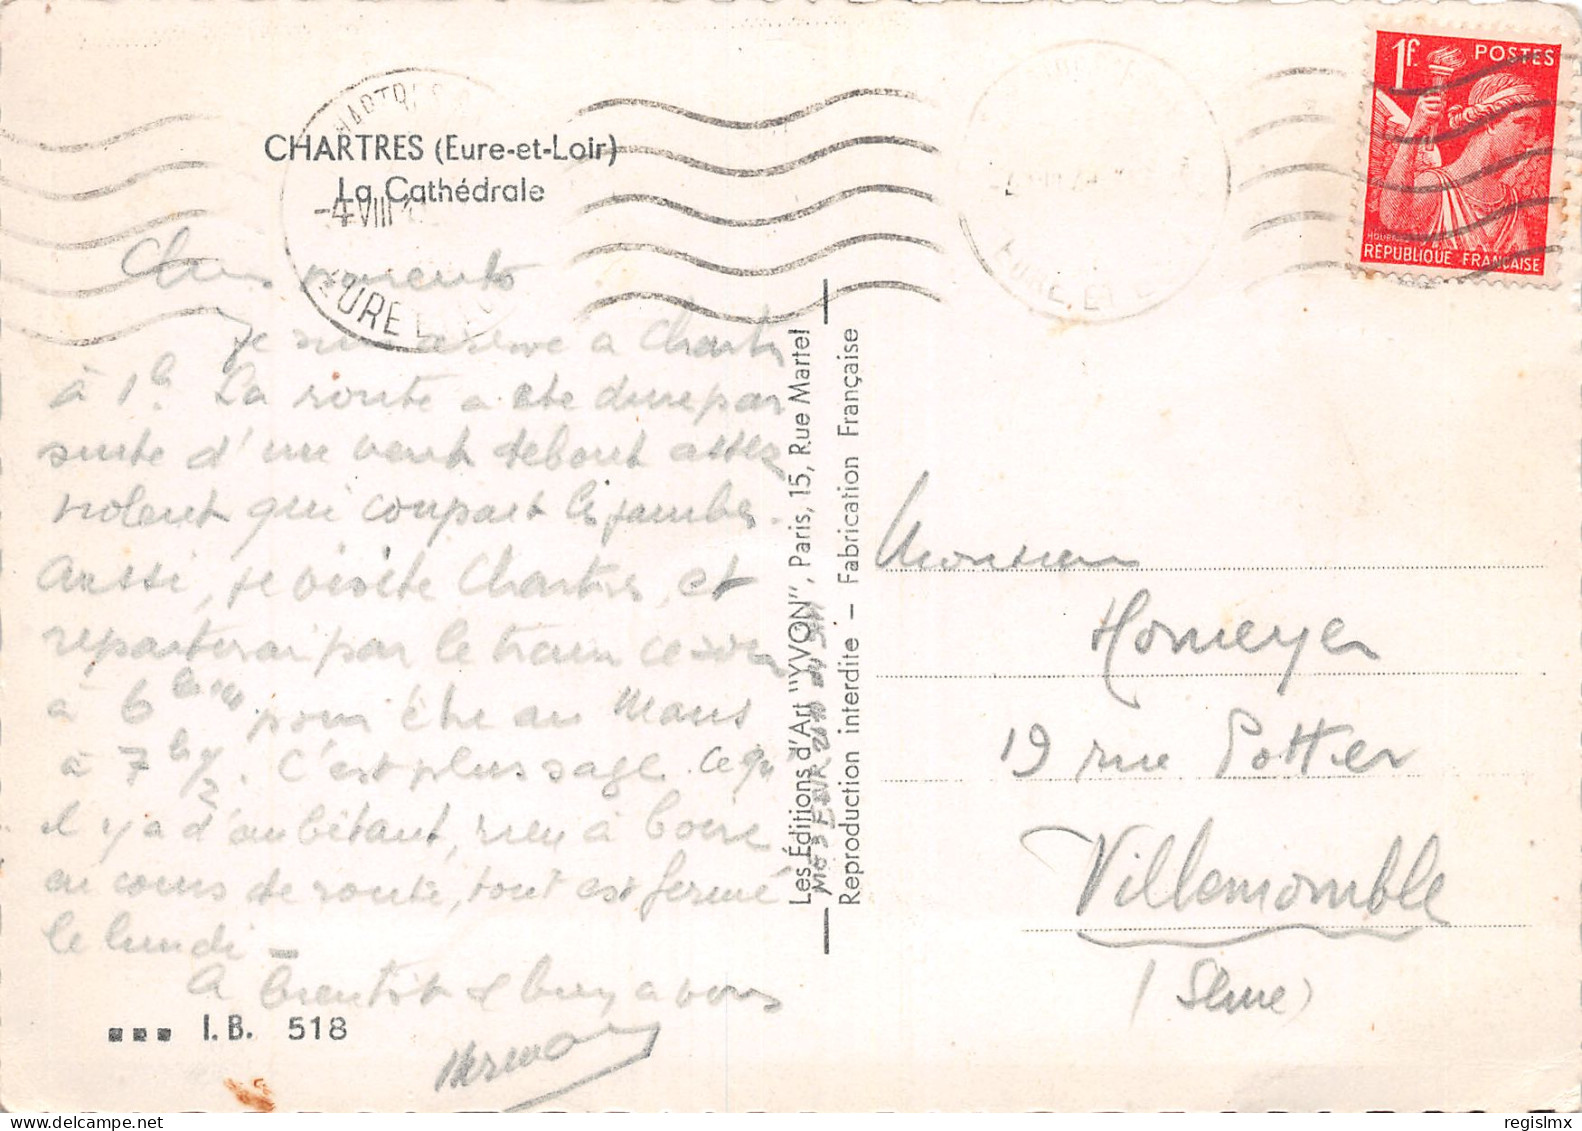 CHARTRES (Eure-et-Loir)
La Cathédrale
-4 VIII
EURE
Chers parents
je suis arrivé à Chartres
à 1h. La route a été dure par
suite d'un vent debout assez
violent qui coupait les jambes.
Aussi, je visite Chartres, et
repartirai par le train ce soir
à 6h pour être au Mans
à 7h 1/2. C'est plus sage. Ce qu'
il y a d'embêtant, rien à boire
en cours de route, tout est fermé
le lundi -
A bientôt de vous
I.B. 518
Les Éditions d'Art "YVON", Paris, 15, Rue Martel
Reproduction interdite — Fabrication Française
1f. POSTES
RÉPUBLIQUE FRANÇAISE
EURE ET L
Monsieur
Homeyer
19 rue Pottier
Villemomble
(Seine)
www.delcampe.net
regislmx